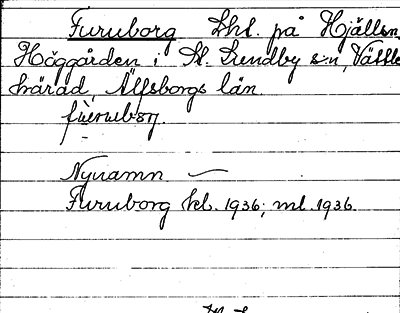 Furuborg Lht. på Hjälsn
Höggården i St. Lundby s:n, Vättle
härad, Älfsborgs län
fùrubòrj.
Nynamn —
Furuborg kb. 1936; ml. 1936.